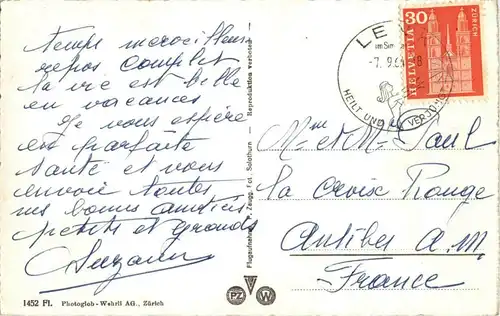 temps merveilleux
repos complet
la vie est belle
en vacances
Je vous espère
en parfaite
santé et vous
envoie toutes
mes bonnes amitiés
petits et grands
Suzanne
1452 Fl. Photoglob-Wehrli AG., Zürich
Flugaufnahme P. Zaugg, Fot. Solothurn — Reproduktion verboten
PZ W
LE
im Sim
-7.9.6
HEILT UND VERJÜNGT
30
HELVETIA
ZÜRICH
Mme et M- Paul
la Croix Rouge
Antibes A.M.
France